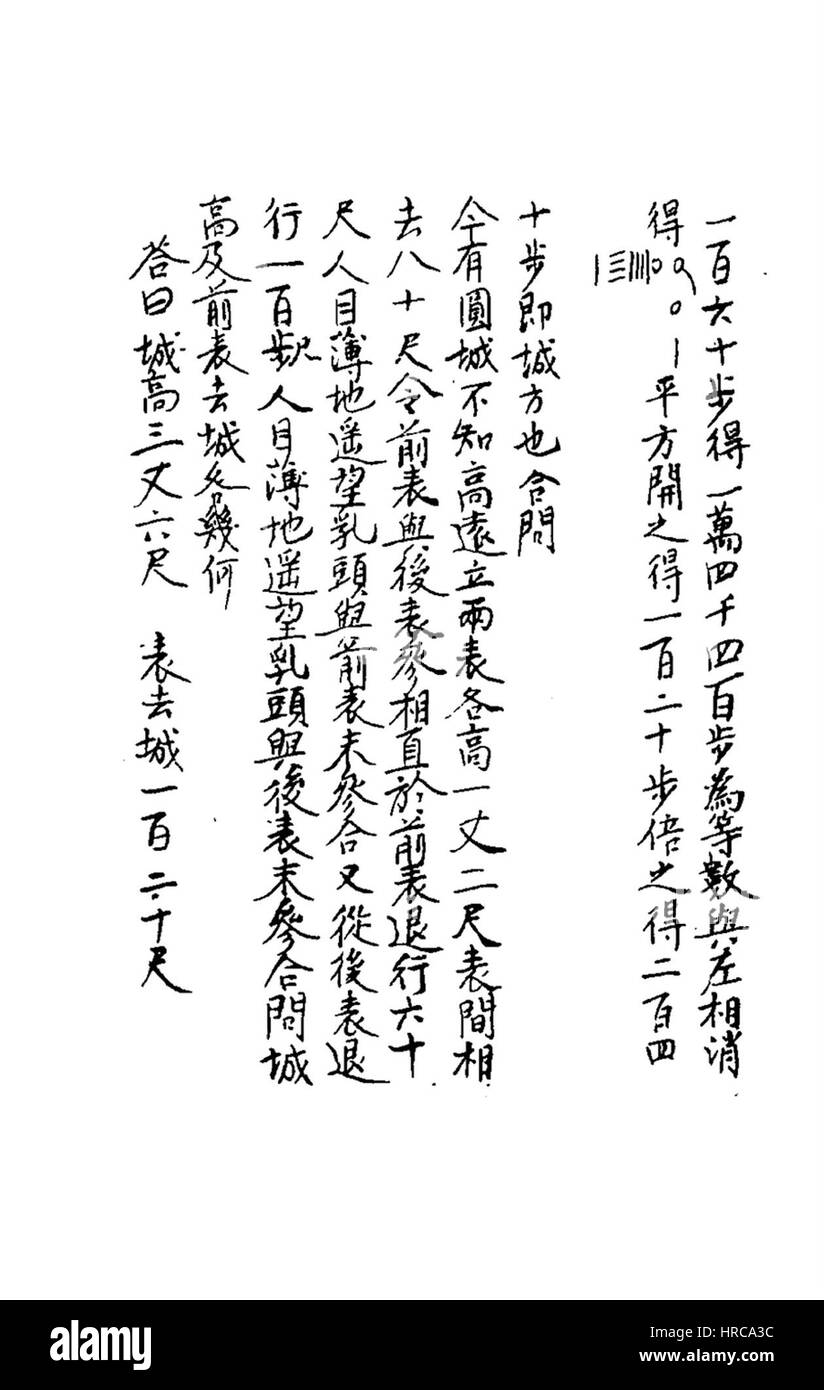 一百六十步得一萬四千四百步為等數與左相消
得
平方開之得一百二十步倍之得二百四
十步即城方也合問
今有圓城不知高遠立兩表各高一丈二尺表間相
去八十尺令前表與後表參相直於前表退行六十
尺人目薄地遥望乳頭與前表末參合又從後表退
行一百 人目薄地遥望乳頭與後表末參合問城
高及前表去城各幾何
答曰城高三丈六尺 表去城一百二十尺
alamy
alamy
Image ID: HRCA3C
www.alamy.com